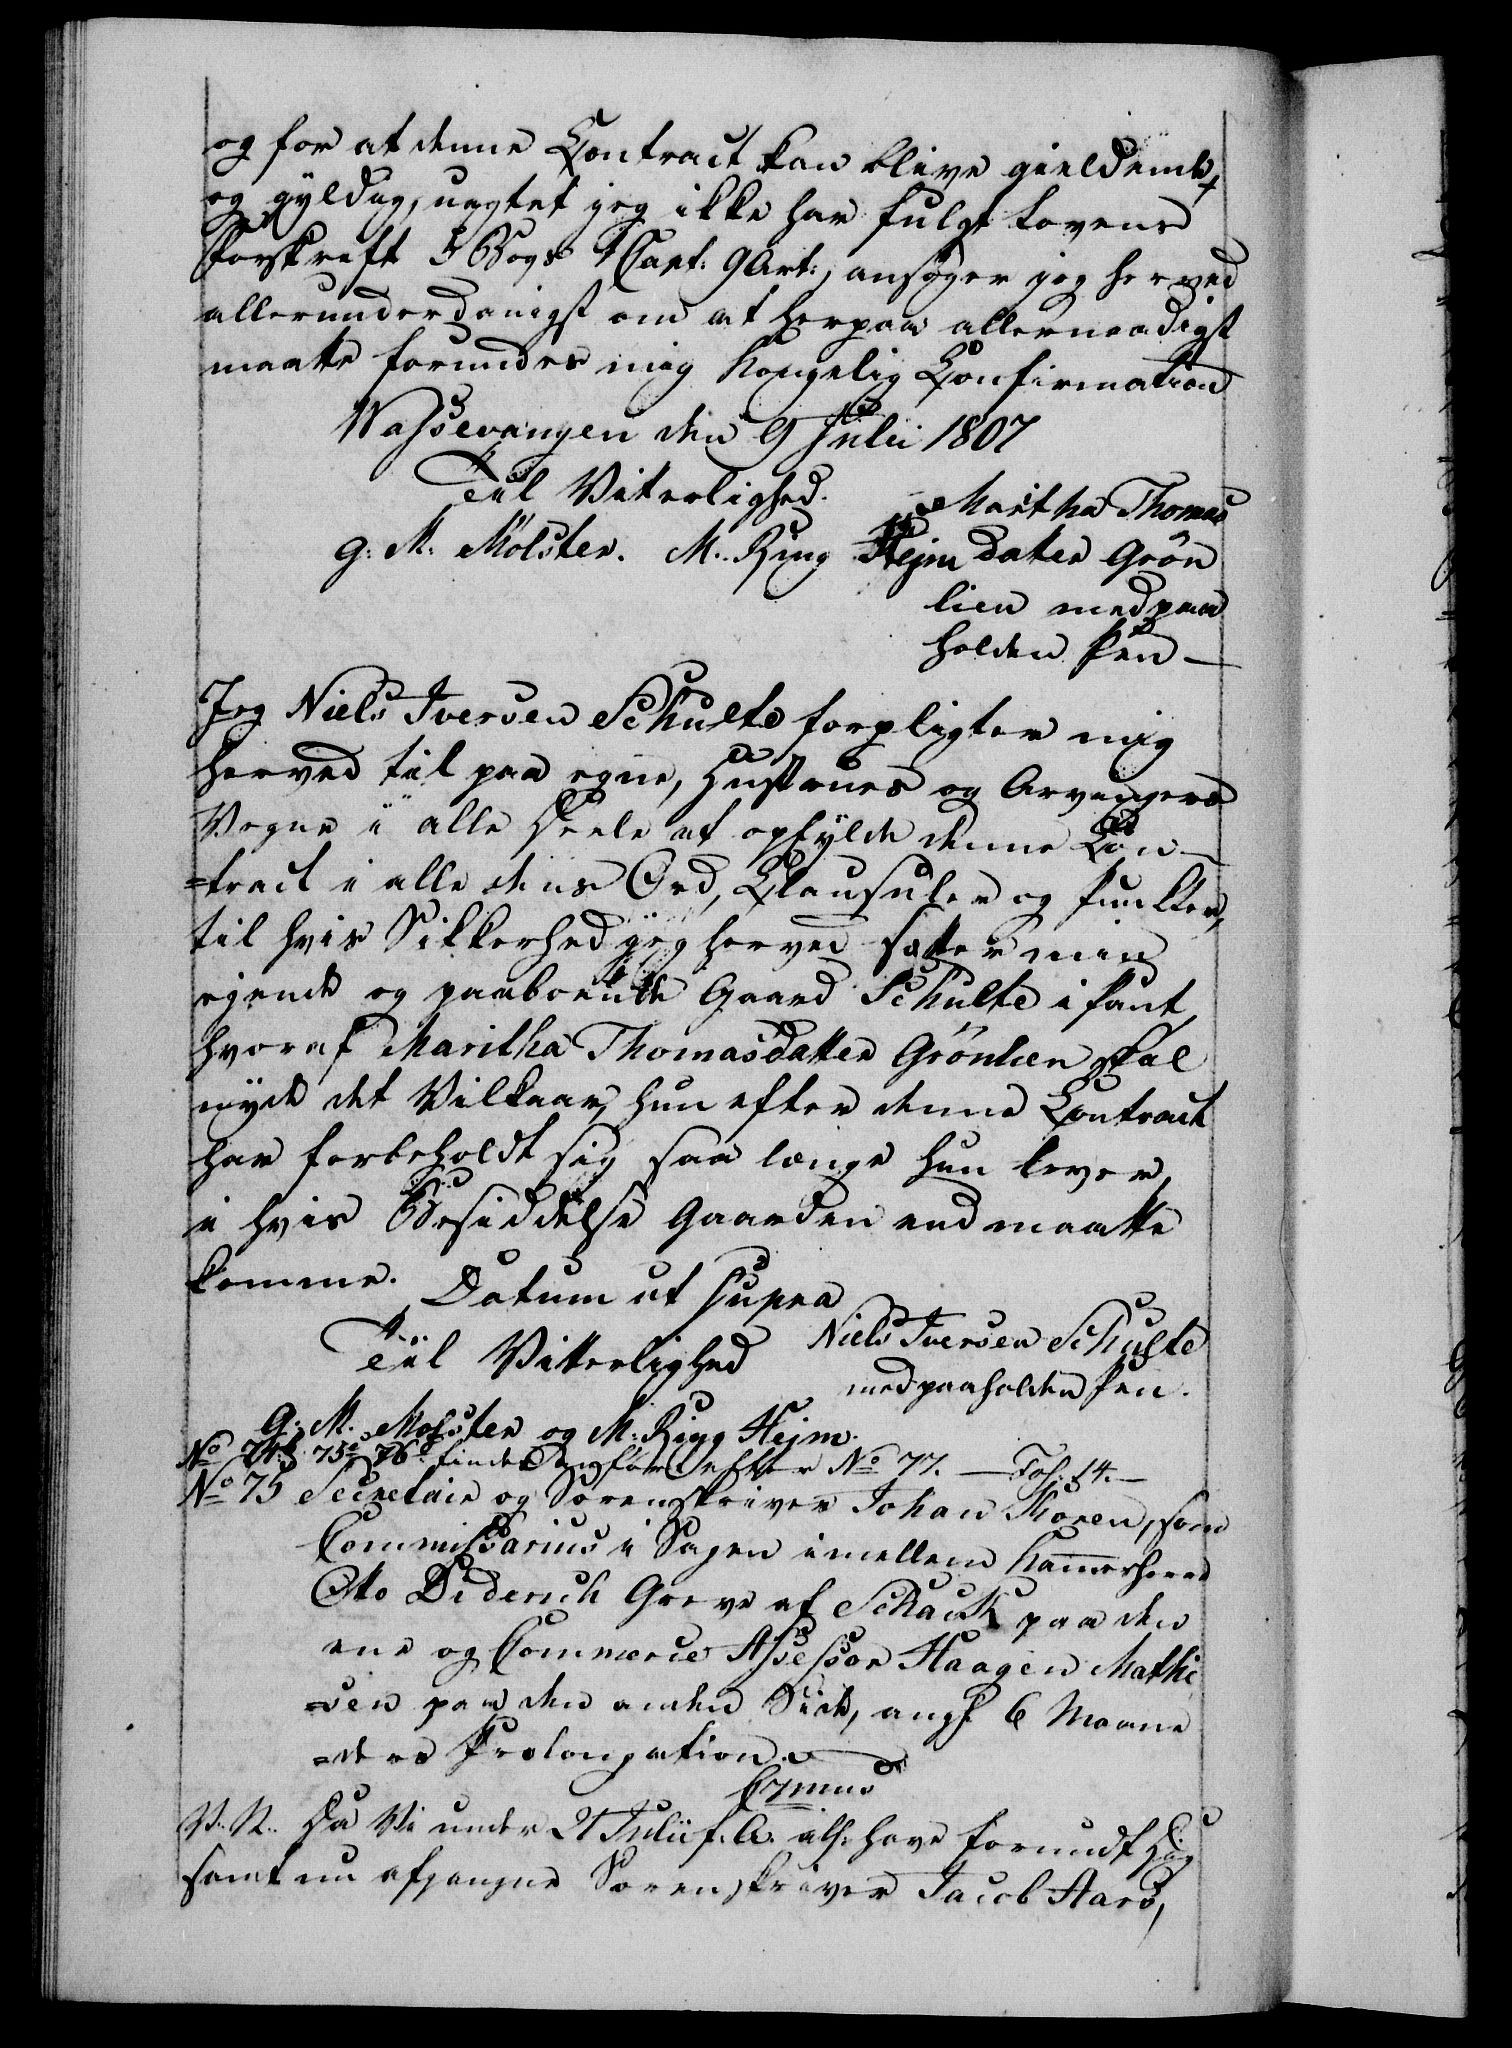 og for at denne Contract kan blive gieldende
og gyldig, uagtet jeg ikke har fulgt Lovens
Forskrift 5 Bogs 4 Capt: 9 Art:, ansøger jeg herved
allerunderdanigst om at herpaa allernaadigst
maatte forundes mig Kongelig Confirmation
Wassevangen den 9 Julii 1807
Til Viterlighed. Maritha Thomas
G: M: Molster. M: Ring Hejm datter Grøn
lien med paa
holden Pen —
Jeg Niels Iversen Schulte forpligter mig
herved til paa egne, Hustrues og Arvingers
Vegne i alle Deele at opfylde denne Con-
=tract i alle dens Ord, Clausuler og Puncter,
til hvis Sikkerhed jeg herved sætter min
ejende og paaboende Gaard Schulte i Pant,
hvoraf Maritha Thomasdatter Grønlien skal
nyde det Vilkaar, hun efter denne Contract
har forbeholdt sig saa længe hun lever,
i hvis Besiddelse Gaarden end maatte
komme. Datum ut supra
Til Vitterlighed Niels Iversen Schulte
med paaholden Pen.
G: M. Molster og M: Ring Hejm.
No 74. 75 76 findes indført efter No 77. — Fol: 14. —
No 75 Secretair og Sorenskriver Johan Thoren, som
Commissarius i Sagen imellem Kammerherre
Otto Diderich Greve af Schack paa den
ene og Commerce Assessor Haagen Mathi
=sen paa den anden Side, angl 6 Maane
=ders Prolongation.
V: V: Da Vi under 2 Julii f: A: alln: have forundt Dig
samt nu afgangne Sorenskriver Jacob Aars,